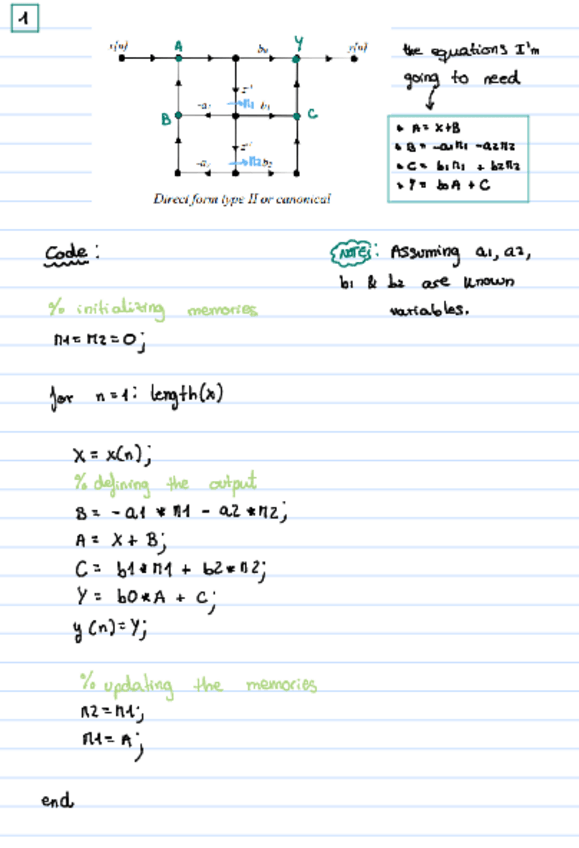 1
x[n] A b₀ Y y[n]
z⁻¹
-a₁ → M1 b₁
B C
z⁻¹
-a₂ → M2 b₂
Direct form type II or canonical
the equations I'm
going to need
• A = X+B
• B = -a1M1 -a2M2
• C = b1M1 + b2M2
• Y = b0A + C
Code:
NOTE: Assuming a1, a2,
b1 & b2 are known
variables.
% initializing memories
M1 = M2 = 0;
for n = 1: length(x)
X = x(n);
% defining the output
B = - a1 * M1 - a2 * M2;
A = X + B;
C = b1 * M1 + b2 * M2;
Y = b0 * A + C;
y(n) = Y;
% updating the memories
M2 = M1;
M1 = A;
end